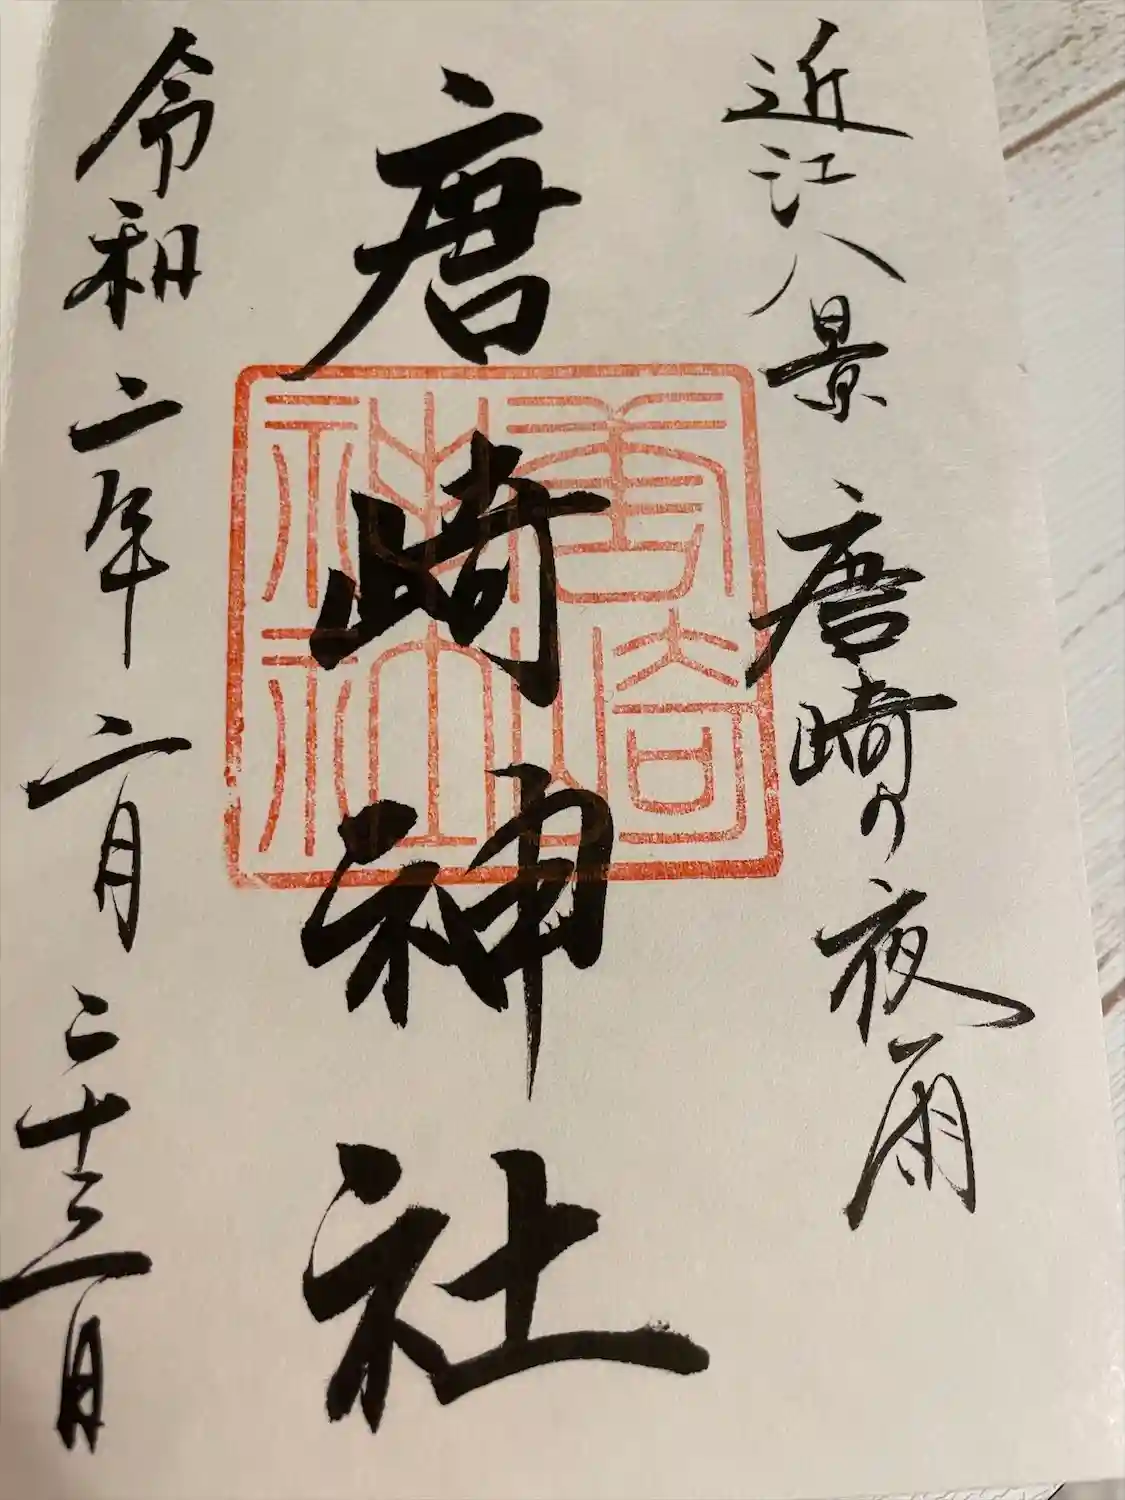 近江八景 唐崎の夜雨
唐崎神社
唐崎神社
令和二年二月二十三日